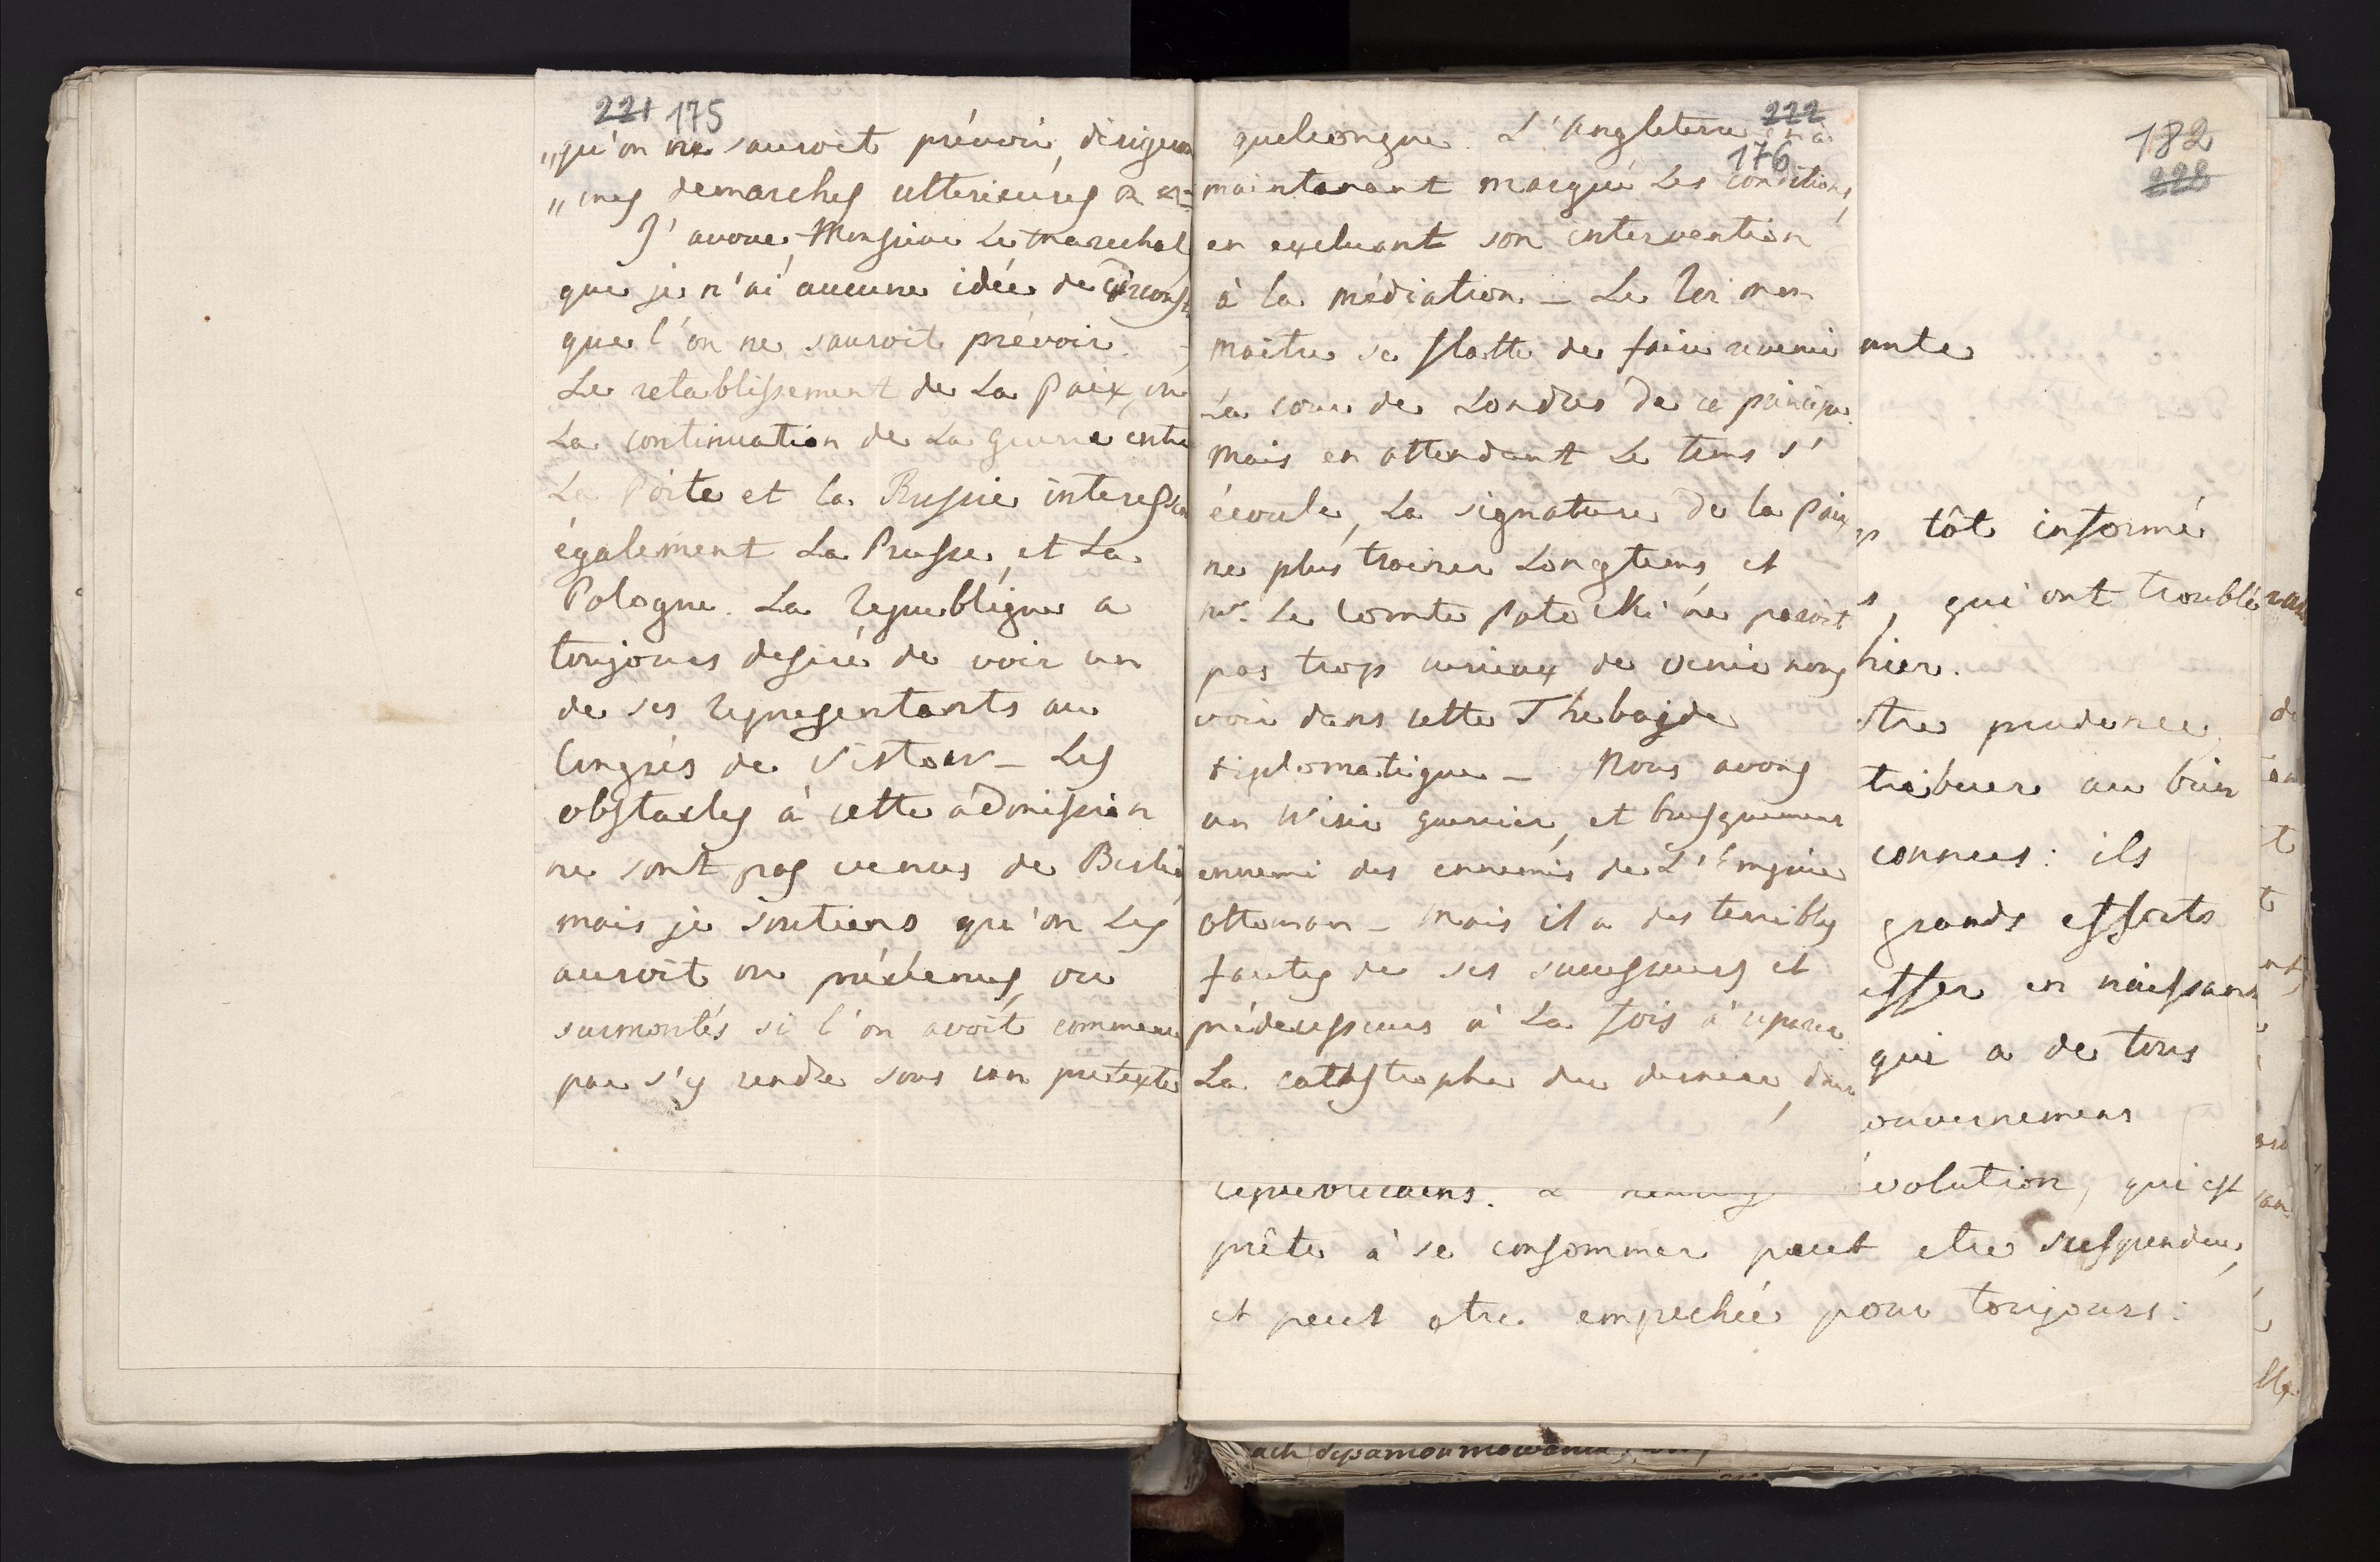 221 175
„qu'on ne sauroit prévoir, dirigeron
„mes demarches ulterieures
J'avoue, Monsieur Le marechal
que je n'ai aucune idée de Circonst
que l'on ne sauroit prévoir.
Le retablissement de La Paix, ou
La continuation de La guerre entre
La Porte et la Russie interessen
également La Prusse, et La
Pologne. La Republique a
toujours desiré de voir un
de ses representants au
Congrès de Sistow – Les
obstacles à cette admission
ne sont pas venus de Berlin
mais je soutiens qu'on Les
auroit ou prévenus, ou
surmontés si l'on avoit commencé
par s'y rendre sous un pretexte
222
176
quelconque. L'Angleterre a
maintenant marqué Les conditions,
en excluant son intervention
à la médiation – Le Roi mon
maitre se flatte de faire revenir
La cour de Londres de ce principe.
Mais en attendant Le tems s'
écoule, La signature de la Paix
ne plus trainer Longtems, et
Mr. Le Comte Potocki ne paroit
pas trop curieux de venir nous
voir dans cette Thebaide
diplomatique – Nous avons
un Visir guerrier, et brusquement
ennemi des ennemis de L'Empire
Ottoman – Mais il a des terribles
fautes de ses successeurs et
prédecesseurs à La fois à reparer
La catastrophe du dernier, dans
182
228
ante
tôt informé
s, qui ont troublé
hier.
tre prudence,
tribuer au bien
connues: ils
grands efforts
effer en naissan
qui a de tous
ouvernemens
republicains. evolution, qui est
prête à se consommer peut etre suspendue,
et peut etre empechée pour toujours: